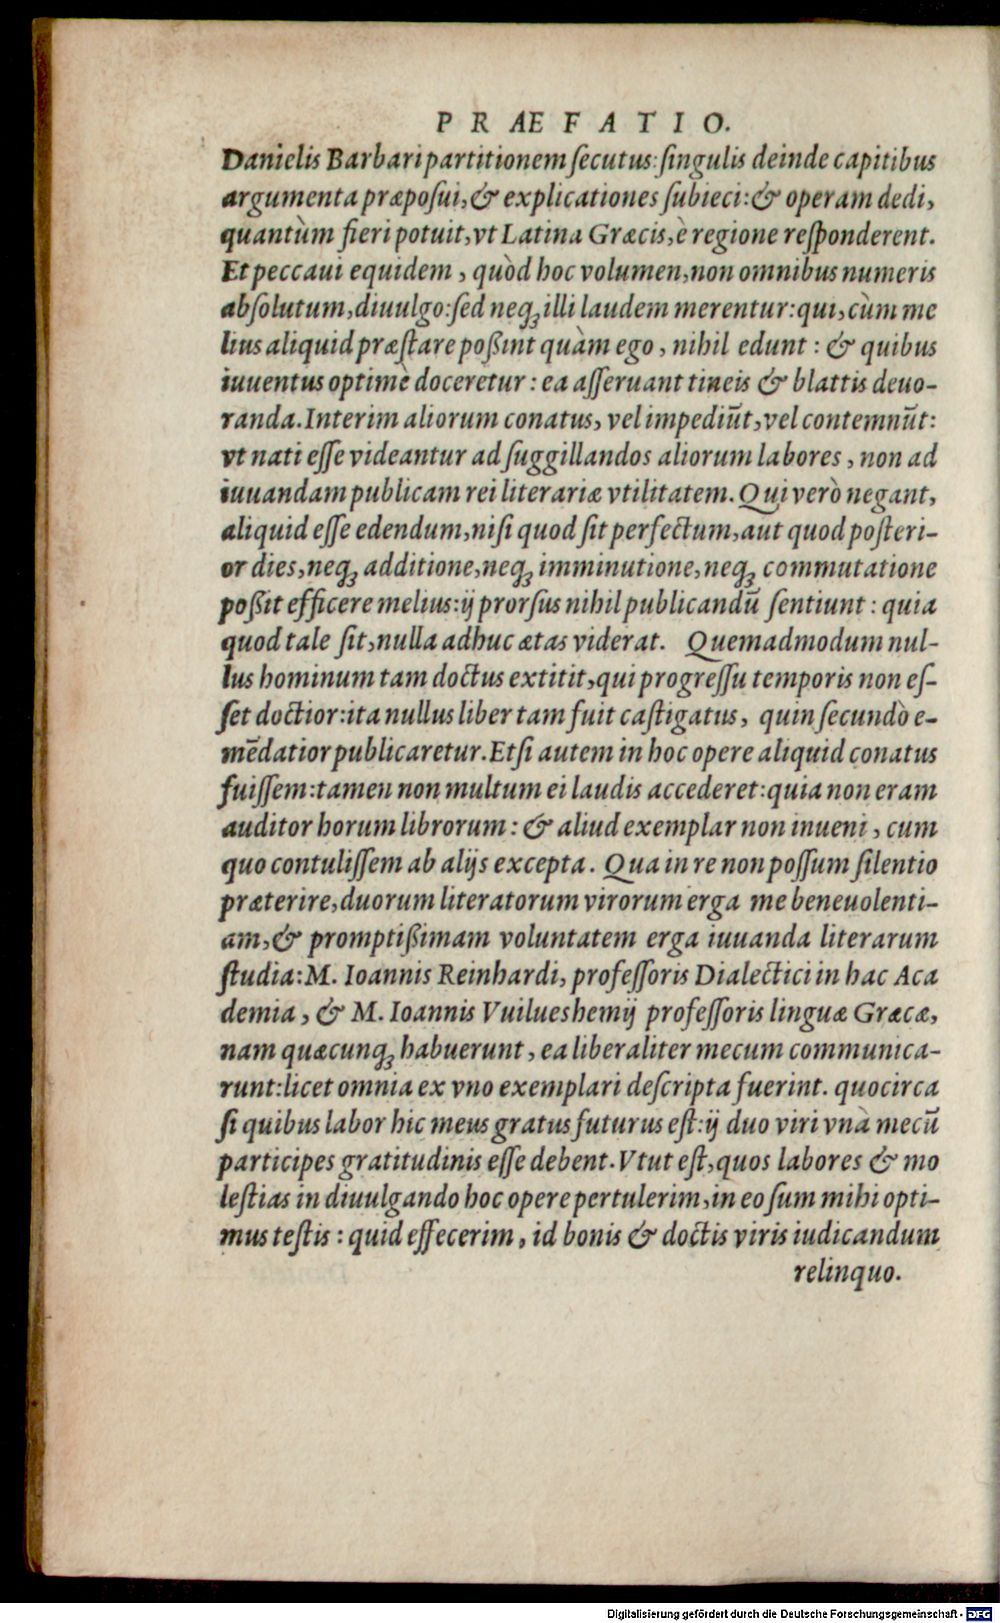 PRÆFATIO.
Danielis Barbari partitionem ſecutus: ſingulis deinde capitibus
argumenta præpoſui, & explicationes ſubieci: & operam dedi,
quantùm fieri potuit, vt Latina Græcis, è regione reſponderent.
Et peccaui equidem, quòd hoc volumen, non omnibus numeris
abſolutum, diuulgo: ſed neqꝫ illi laudem merentur: qui, cùm me
lius aliquid præſtare poßint quàm ego, nihil edunt: & quibus
iuuentus optimè doceretur: ea aſſeruant tineis & blattis deuo-
randa. Interim aliorum conatus, vel impediūt, vel contemnūt:
vt nati eſſe videantur ad ſuggillandos aliorum labores, non ad
iuuandam publicam rei literariæ vtilitatem. Qui verò negant,
aliquid eſſe edendum, niſi quod ſit perfectum, aut quod poſteri-
or dies, neqꝫ additione, neqꝫ imminutione, neqꝫ commutatione
poßit efficere melius: ij prorſus nihil publicandū ſentiunt: quia
quod tale ſit, nulla adhuc ætas viderat. Quemadmodum nul-
lus hominum tam doctus extitit, qui progreſſu temporis non eſ-
ſet doctior: ita nullus liber tam fuit caſtigatus, quin ſecundò e-
mēdatior publicaretur. Etſi autem in hoc opere aliquid conatus
fuiſſem: tamen non multum ei laudis accederet: quia non eram
auditor horum librorum: & aliud exemplar non inueni, cum
quo contuliſſem ab alijs excepta. Qua in re non poſſum ſilentio
præterire, duorum literatorum virorum erga me beneuolenti-
am, & promptißimam voluntatem erga iuuanda literarum
ſtudia: M. Ioannis Reinhardi, profeſſoris Dialectici in hac Aca
demia, & M. Ioannis Vuilueshemij profeſſoris linguæ Græcæ,
nam quæcunqꝫ habuerunt, ea liberaliter mecum communica-
runt: licet omnia ex vno exemplari deſcripta fuerint. quocirca
ſi quibus labor hic meus gratus futurus eſt: ij duo viri vnà mecū
participes gratitudinis eſſe debent. Vtut eſt, quos labores & mo
leſtias in diuulgando hoc opere pertulerim, in eo ſum mihi opti-
mus teſtis: quid effecerim, id bonis & doctis viris iudicandum
relinquo.
Digitalisierung gefördert durch die Deutsche Forschungsgemeinschaft - DFG